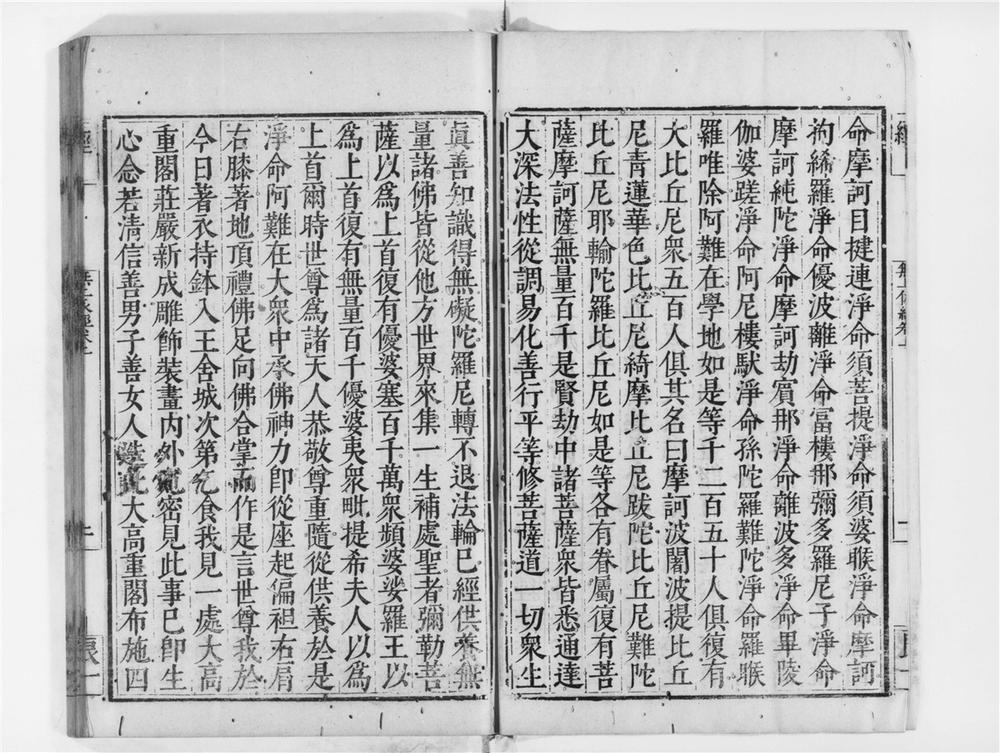 命摩訶目揵連淨命須菩提淨命須婆睺淨命摩訶
拘絺羅淨命優波離淨命富樓那彌多羅尼子淨命
摩訶純陀淨命摩訶劫賓那淨命離波多淨命畢陵
伽婆蹉淨命阿尼樓馱淨命孫陀羅難陀淨命羅睺
羅唯除阿難在學地如是等千二百五十人俱復有
大比丘尼衆五百人俱其名曰摩訶波闍波提比丘
尼青蓮華色比丘尼綺摩比丘尼跋陀比丘尼難陀
比丘尼耶輸陀羅比丘尼如是等各有眷屬復有菩
薩摩訶薩無量百千是賢劫中諸菩薩衆皆悉通達
大深法性從調易化善行平等修菩薩道一切衆生
眞善知識得無礙陀羅尼轉不退法輪已經供養無
量諸佛皆從他方世界來集一生補處聖者彌勒菩
薩以爲上首復有優婆塞百千萬衆頻婆娑羅王以
爲上首復有無量百千優婆夷衆毗提希夫人以爲
上首爾時世尊爲諸天人恭敬尊重隨從供養於是
淨命阿難在大衆中承佛神力即從座起偏袒右肩
右膝著地頂禮佛足向佛合掌而作是言世尊我於
今日著衣持鉢入王舍城次第乞食我見一處大高
重閣莊嚴新成雕飾裝畫内外寬密見此事已即生
心念若清信善男子善女人造此大高重閣布施四